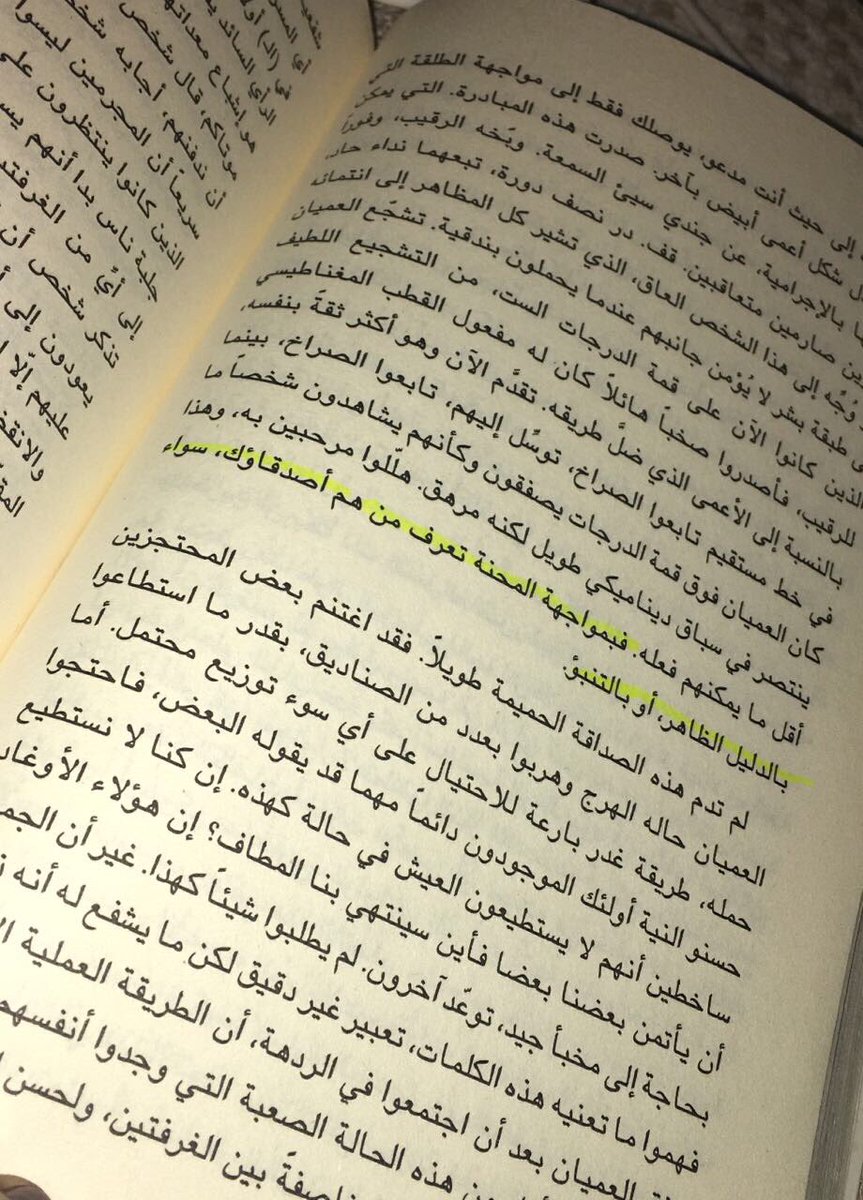 إلى حيث أنت مدعو، يوصلك فقط إلى مواجهة الطلقة التي
شكل أعمى أبيض بآخر. صدرت هذه المبادرة. التي يمكن
بالإجرامية، عن جندي سيئ السمعة. وبّخه الرقيب، وفوراً
صارمين متعاقبين. قف. در نصف دورة، تبعهما نداء حاد،
وُجِّه إلى هذا الشخص العاق، الذي تشير كل المظاهر إلى انتمائه
طبقة بشر لا يُؤمن جانبهم عندما يحملون بندقية. تشجّع العميان
الذين كانوا الآن على قمة الدرجات الست، من التشجيع اللطيف
للرقيب، فأصدروا صخباً هائلاً كان له مفعول القطب المغناطيسي
بالنسبة إلى الأعمى الذي ضلّ طريقه. تقدَّم الآن وهو أكثر ثقةً بنفسه،
في خط مستقيم تابعوا الصراخ، توسّل إليهم، تابعوا الصراخ، بينما
كان العميان فوق قمة الدرجات يصفقون وكأنهم يشاهدون شخصاً ما
ينتصر في سباق ديناميكي طويل لكنه مرهق. هلّلوا مرحبين به، وهذا
أقل ما يمكنهم فعله. فبمواجهة المحنة تعرف من هم أصدقاؤك، سواء
بالدليل الظاهر، أو بالتنبؤ.
لم تدم هذه الصداقة الحميمة طويلاً. فقد اغتنم بعض المحتجزين
العميان حاله الهرج وهربوا بعدد من الصناديق، بقدر ما استطاعوا
حمله، طريقة غدر بارعة للاحتيال على أي سوء توزيع محتمل. أما
حسنو النية أولئك الموجودون دائماً مهما قد يقوله البعض، فاحتجوا
ساخطين أنهم لا يستطيعون العيش في حالة كهذه. إن كنا لا نستطيع
أن يأتمن بعضنا بعضا فأين سينتهي بنا المطاف؟ إن هؤلاء الأوغاد
بحاجة إلى مخبأ جيد، توعّد آخرون. لم يطلبوا شيئاً كهذا. غير أن
فهموا ما تعنيه هذه الكلمات، تعبير غير دقيق لكن ما يشفع له أنه
العميان بعد أن اجتمعوا في الردهة، أن الطريقة العملية
هذه الحالة الصعبة التي وجدوا أنفسهم
بين الغرفتين، ولحسن
في (الـ)
الرأي السائد
هو إشباع
موتاكم، قال شخص
أن ندفنهم، أجابه
سريعاً أن المجرمين ليسوا
الذين كانوا ينتظرون على
جلبة ناس بدا أنهم
إلى أيٍّ من
تذكر شخص أن
يعودون إلى
عليهم إلّا